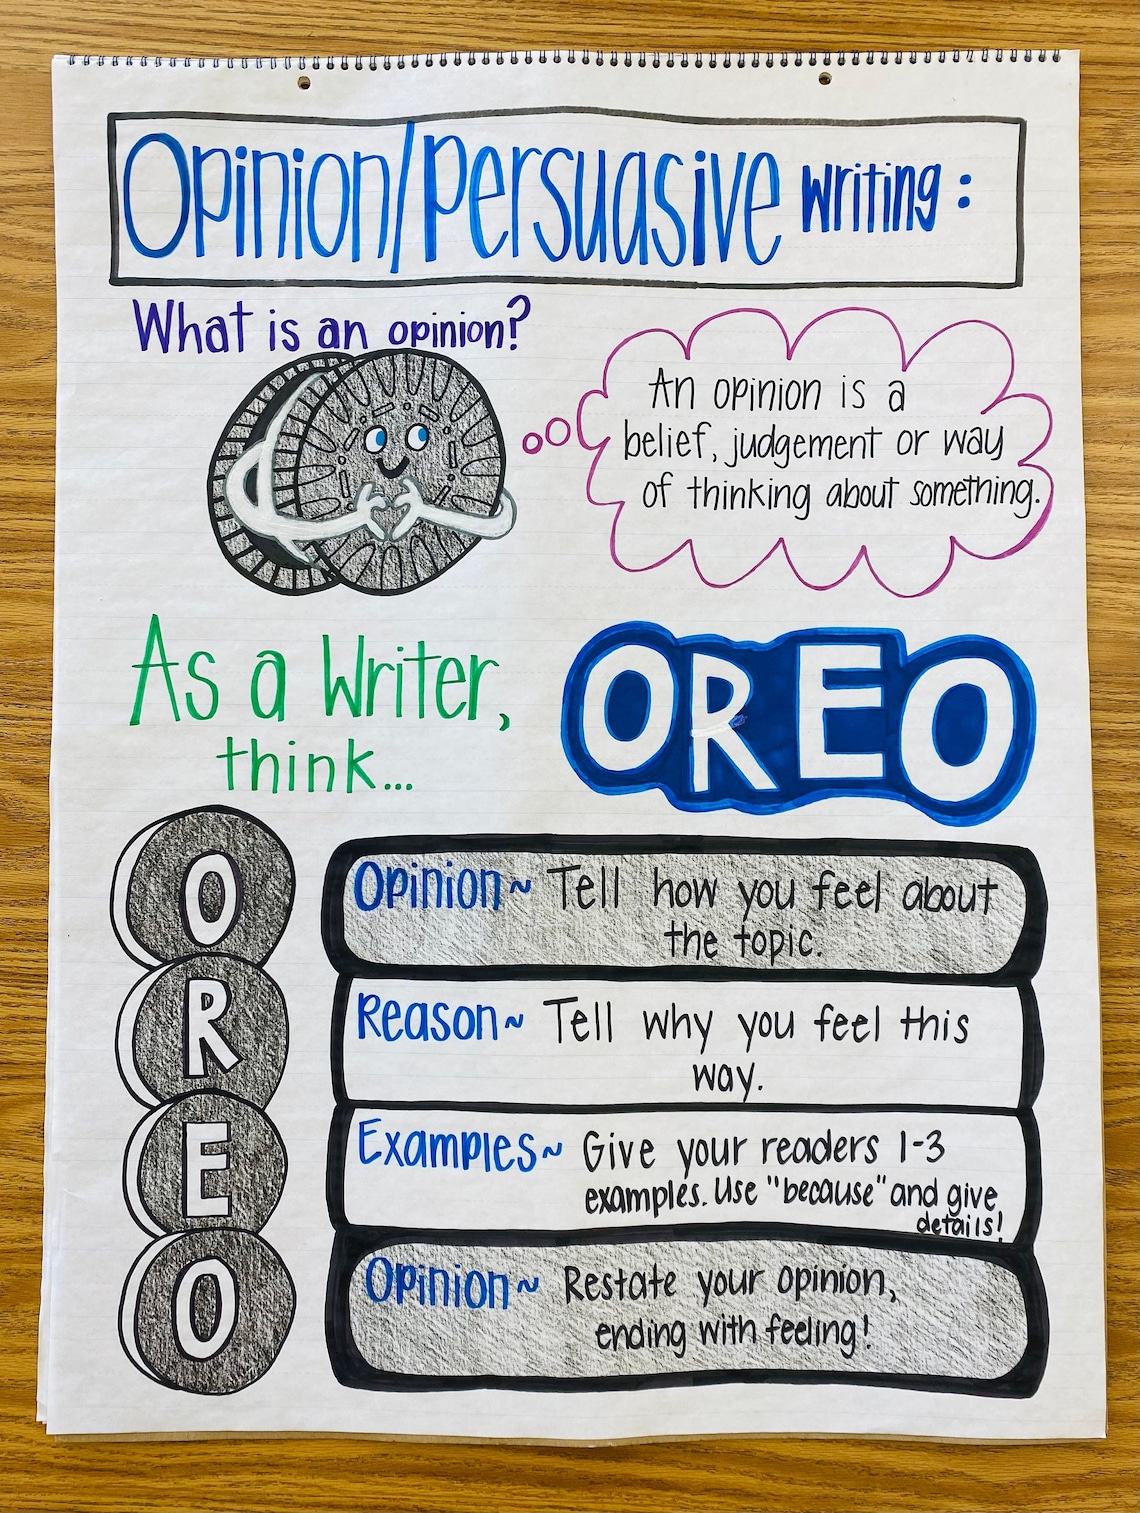 Opinion/Persuasive Writing:
What is an opinion?
An opinion is a
belief, judgement or way
of thinking about something.
As a Writer,
think...
OREO
O
Opinion~ Tell how you feel about
the topic.
R
Reason~ Tell why you feel this
way.
E
Examples~ Give your readers 1-3
examples. Use "because" and give
details!
O
Opinion~ Restate your opinion,
ending with feeling!